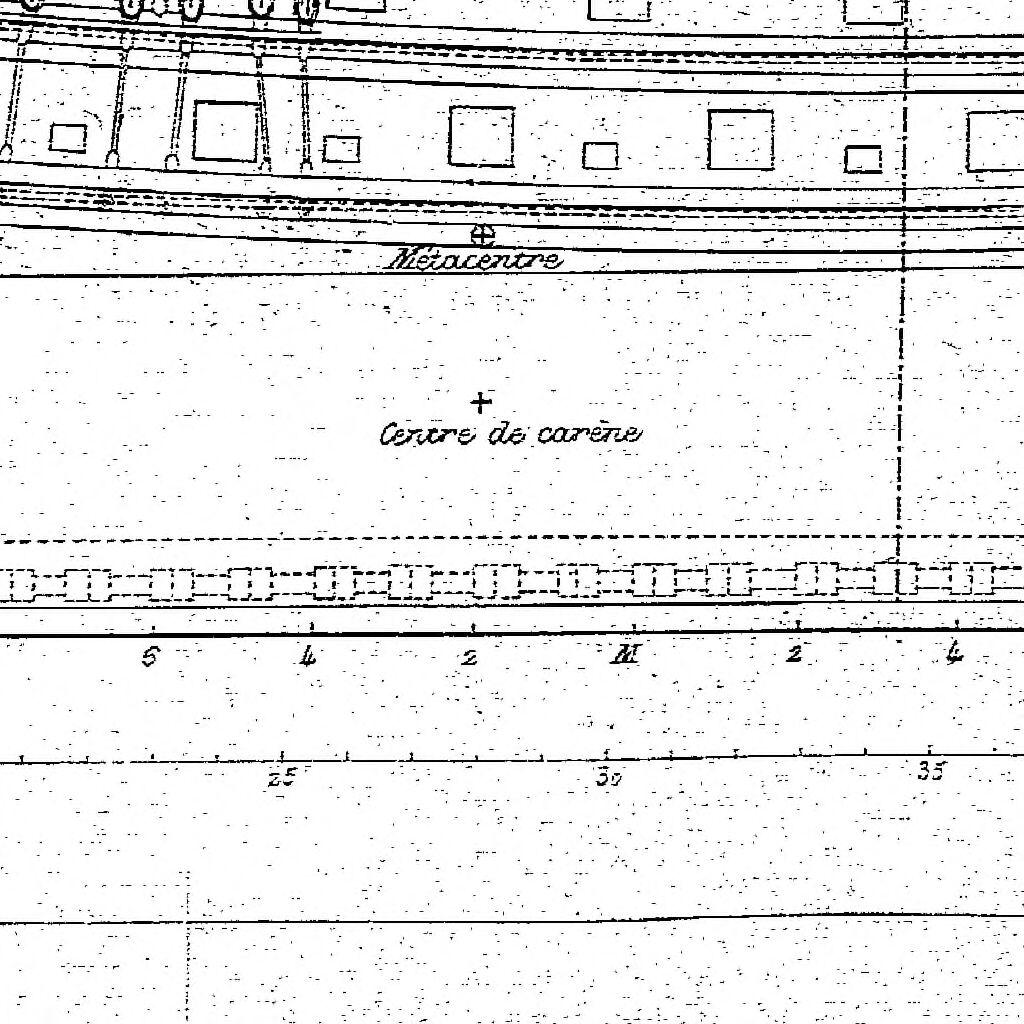 Métacentre
Centre de carène
5 4 2 M 2 4
25 30 35